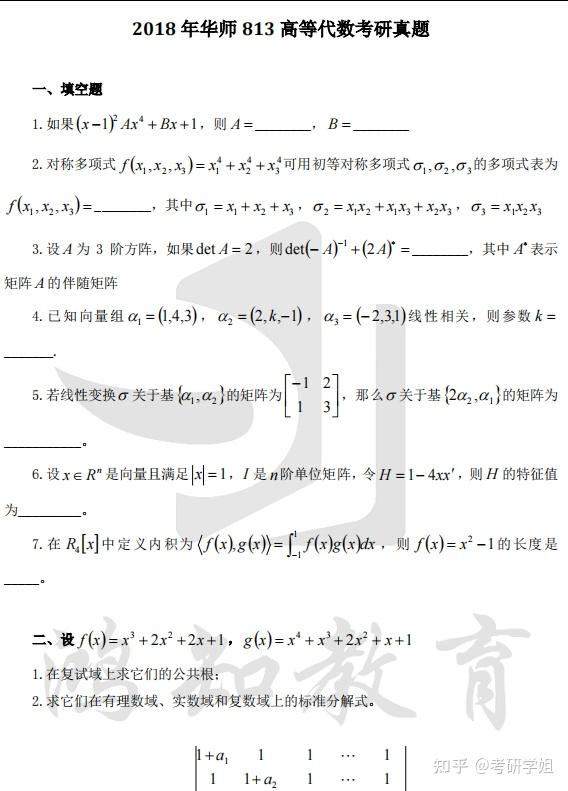 2018 年华师 813 高等代数考研真题
一、填空题
1.如果(x−1)² Ax⁴ + Bx + 1，则 A = ________， B = ________
2.对称多项式 f(x₁, x₂, x₃) = x₁⁴ + x₂⁴ + x₃⁴ 可用初等对称多项式 σ₁, σ₂, σ₃ 的多项式表为
f(x₁, x₂, x₃) = ________，其中 σ₁ = x₁ + x₂ + x₃ ，σ₂ = x₁x₂ + x₁x₃ + x₂x₃ ，σ₃ = x₁x₂x₃
3.设 A 为 3 阶方阵，如果 det A = 2，则 det(−A)⁻¹ + (2A)• = ________，其中 A• 表示
矩阵 A 的伴随矩阵
4.已知向量组 α₁ = (1,4,3)，α₂ = (2,k,−1)，α₃ = (−2,3,1) 线性相关，则参数 k =
_______.
5.若线性变换 σ 关于基 {α₁, α₂} 的矩阵为 [−1 2; 1 3]，那么 σ 关于基 {2α₂, α₁} 的矩阵为
___________。
6.设 x ∈ Rⁿ 是向量且满足 |x| = 1，I 是 n 阶单位矩阵，令 H = 1 − 4xx′，则 H 的特征值
为_________。
7.在 R₄[x] 中定义内积为 ⟨f(x), g(x)⟩ = ∫₋₁¹ f(x)g(x)dx ，则 f(x) = x² − 1 的长度是
_____。
二、设 f(x) = x³ + 2x² + 2x + 1，g(x) = x⁴ + x³ + 2x² + x + 1
1.在复试域上求它们的公共根；
2.求它们在有理数域、实数域和复数域上的标准分解式。
鸿知教育
1 + a₁ 1 1 ⋯ 1
1 1 + a₂ 1 ⋯ 1
知乎 @考研学姐